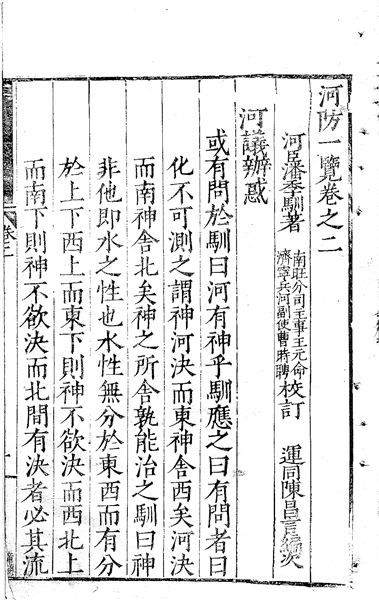 河防一覽卷之二
河臣潘季馴著
南旺分司主事王元命
濟寧兵河副使曹時聘
校訂
運同陳昌言編次
河議辯惑
或有問於馴曰河有神乎馴應之曰有問者曰
化不可測之謂神河決而東神舍西矣河決
而南神舍北矣神之所舍孰能治之馴曰神
非他即水之性也水性無分於東西而有分
於上下西上而東下則神不欲決而西北上
而南下則神不欲決而北間有決者必其流
卷二